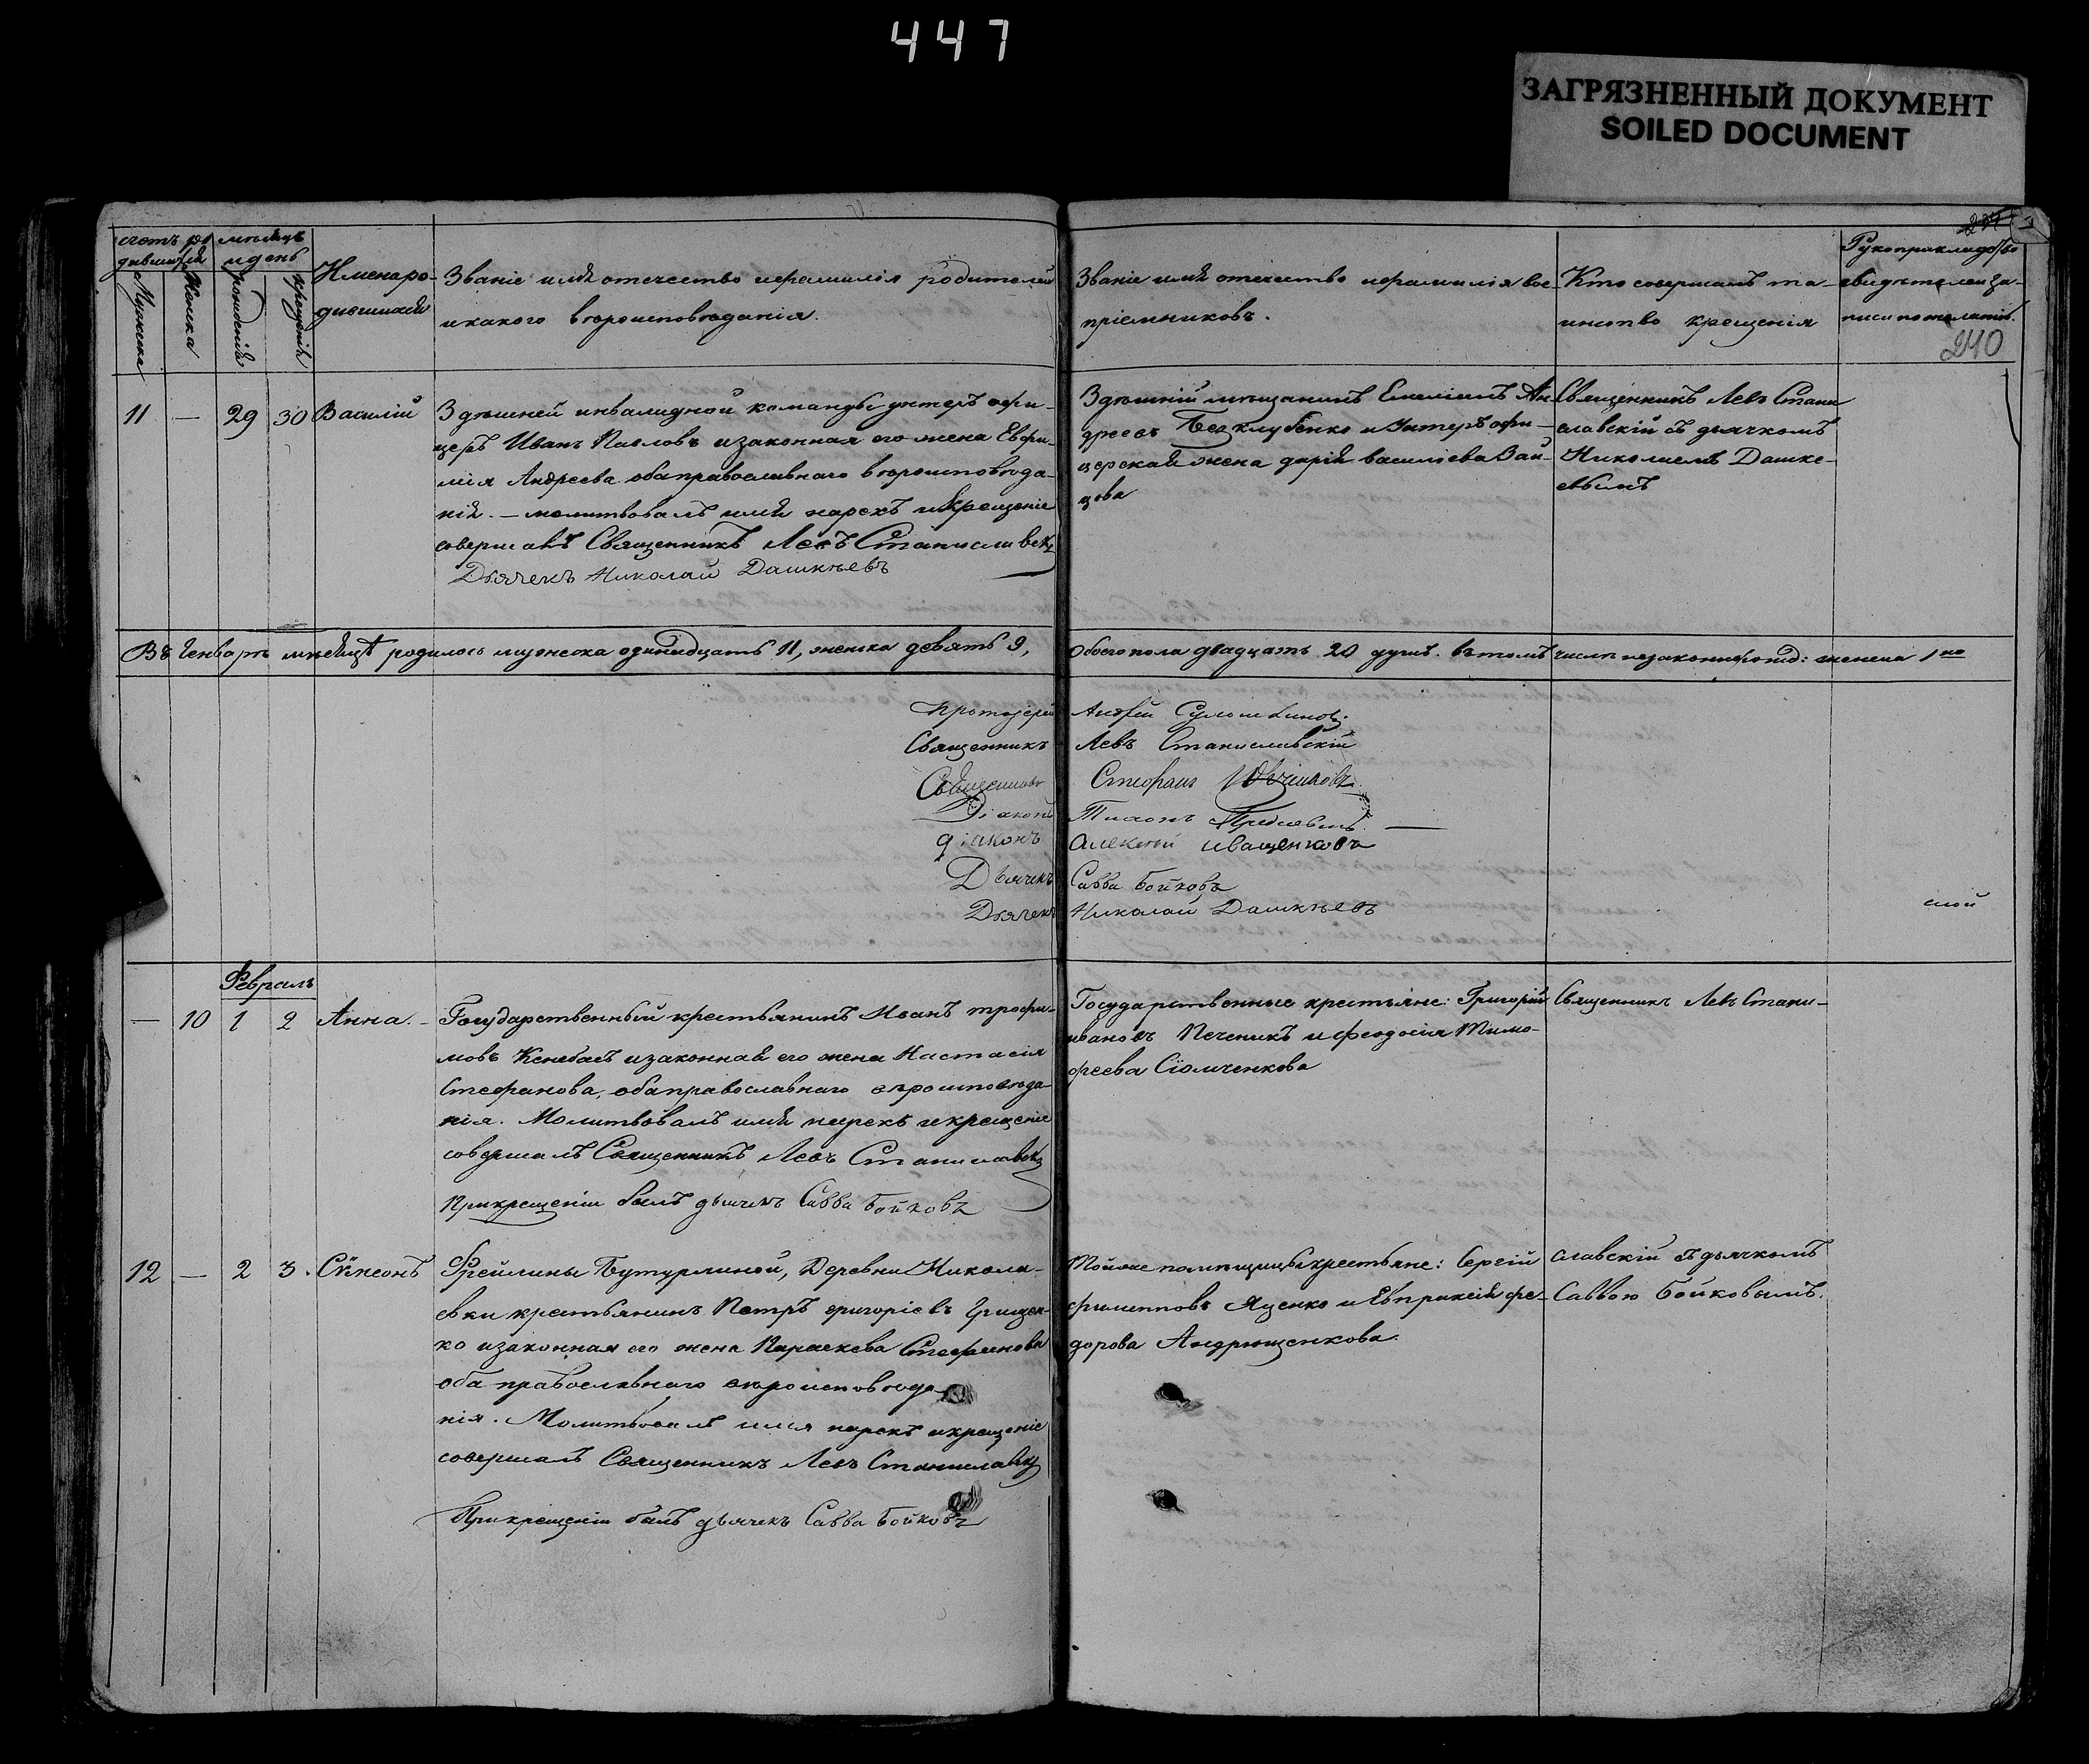 447
ЗАГРЯЗНЕННЫЙ ДОКУМЕНТ
SOILED DOCUMENT
240
счетъ ро
дившихся
мѣсяцъ
и день
Мужеска
Женска
рожденія
крещенія
Имена ро-
дившихся
Званіе имя отечество и фамилія родителей
и какого вѣроисповѣданія.
Званіе имя отечество и фамилія вос-
пріемниковъ.
Кто совершалъ та-
инство крещенія
Рукоприкладство
свидѣтелей за-
писи по желанію.
11 — 29 30 Василій
Здѣшней инвалидной команды унтеръ офи-
церъ Иванъ Павловъ и законная его жена Евфи-
мія Андреева оба православнаго вѣроисповѣда-
нія. — молитвовалъ имя нарекъ и крещеніе
совершалъ Священникъ Левъ Станиславскій
Дьячекъ Николай Дашкѣевъ
Здѣшній мѣщанинъ Емеліанъ Ан-
дреевъ Безклубенко и Унтеръ офи-
церская жена Дарія Василіева Зай-
цова
Священникъ Левъ Стани
славскій съ дьячкомъ
Николаемъ Дашке-
евымъ
Въ Генварѣ мѣсяцѣ родилось мужеска одинадцать 11, женска девять 9, Обоего пола двадцать 20 душъ. въ томъ числѣ незаконнорожд: женска 1на
Протоіерей Андрей
Священникъ Левъ Станиславскій
Священникъ Стефанъ Овчинниковъ
Діаконъ Тихонъ
Діаконъ Алексѣй Иващенковъ
Дьячекъ Савва Бойковъ
Дьячекъ Николай Дашкѣевъ
Февраль
— 10 1 2 Анна. —
Государственный крестьянинъ Иванъ Трофи-
мовъ Кенебасъ и законная его жена Настасія
Стефанова, оба православнаго вѣроисповѣда-
нія. Молитвовалъ имя нарекъ и крещеніе
совершалъ Священникъ Левъ Станиславскій
При крещеніи былъ дьячекъ Савва Бойковъ
Государственные крестьяне: Григорій
Ивановъ Печеникъ и Феодосія Тимо-
феева Сіомченкова
Священникъ Левъ Стани-
12 — 2 3. Сѵмеонъ
Фрейлины Бутурлиной, Деревни Никола-
евки крестьянинъ Петръ Григоріевъ Грищен-
ко и законная его жена Параскева Стефанова
оба православнаго вѣроисповѣда-
нія. Молитвовалъ имя нарекъ и крещеніе
совершалъ Священникъ Левъ Станиславскій
При крещеніи былъ дьячекъ Савва Бойковъ
Той же помѣщицы крестьяне: Сергій
Филипповъ Яценко и Евпраксія Фе-
дорова Андрющенкова.
славскій съ дьячкомъ
Саввою Бойковымъ.